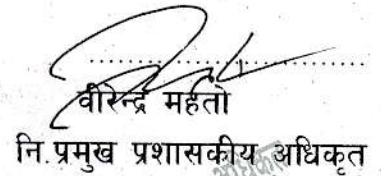 वीरेन्द्र महतो
नि.प्रमुख प्रशासकीय अधिकृत